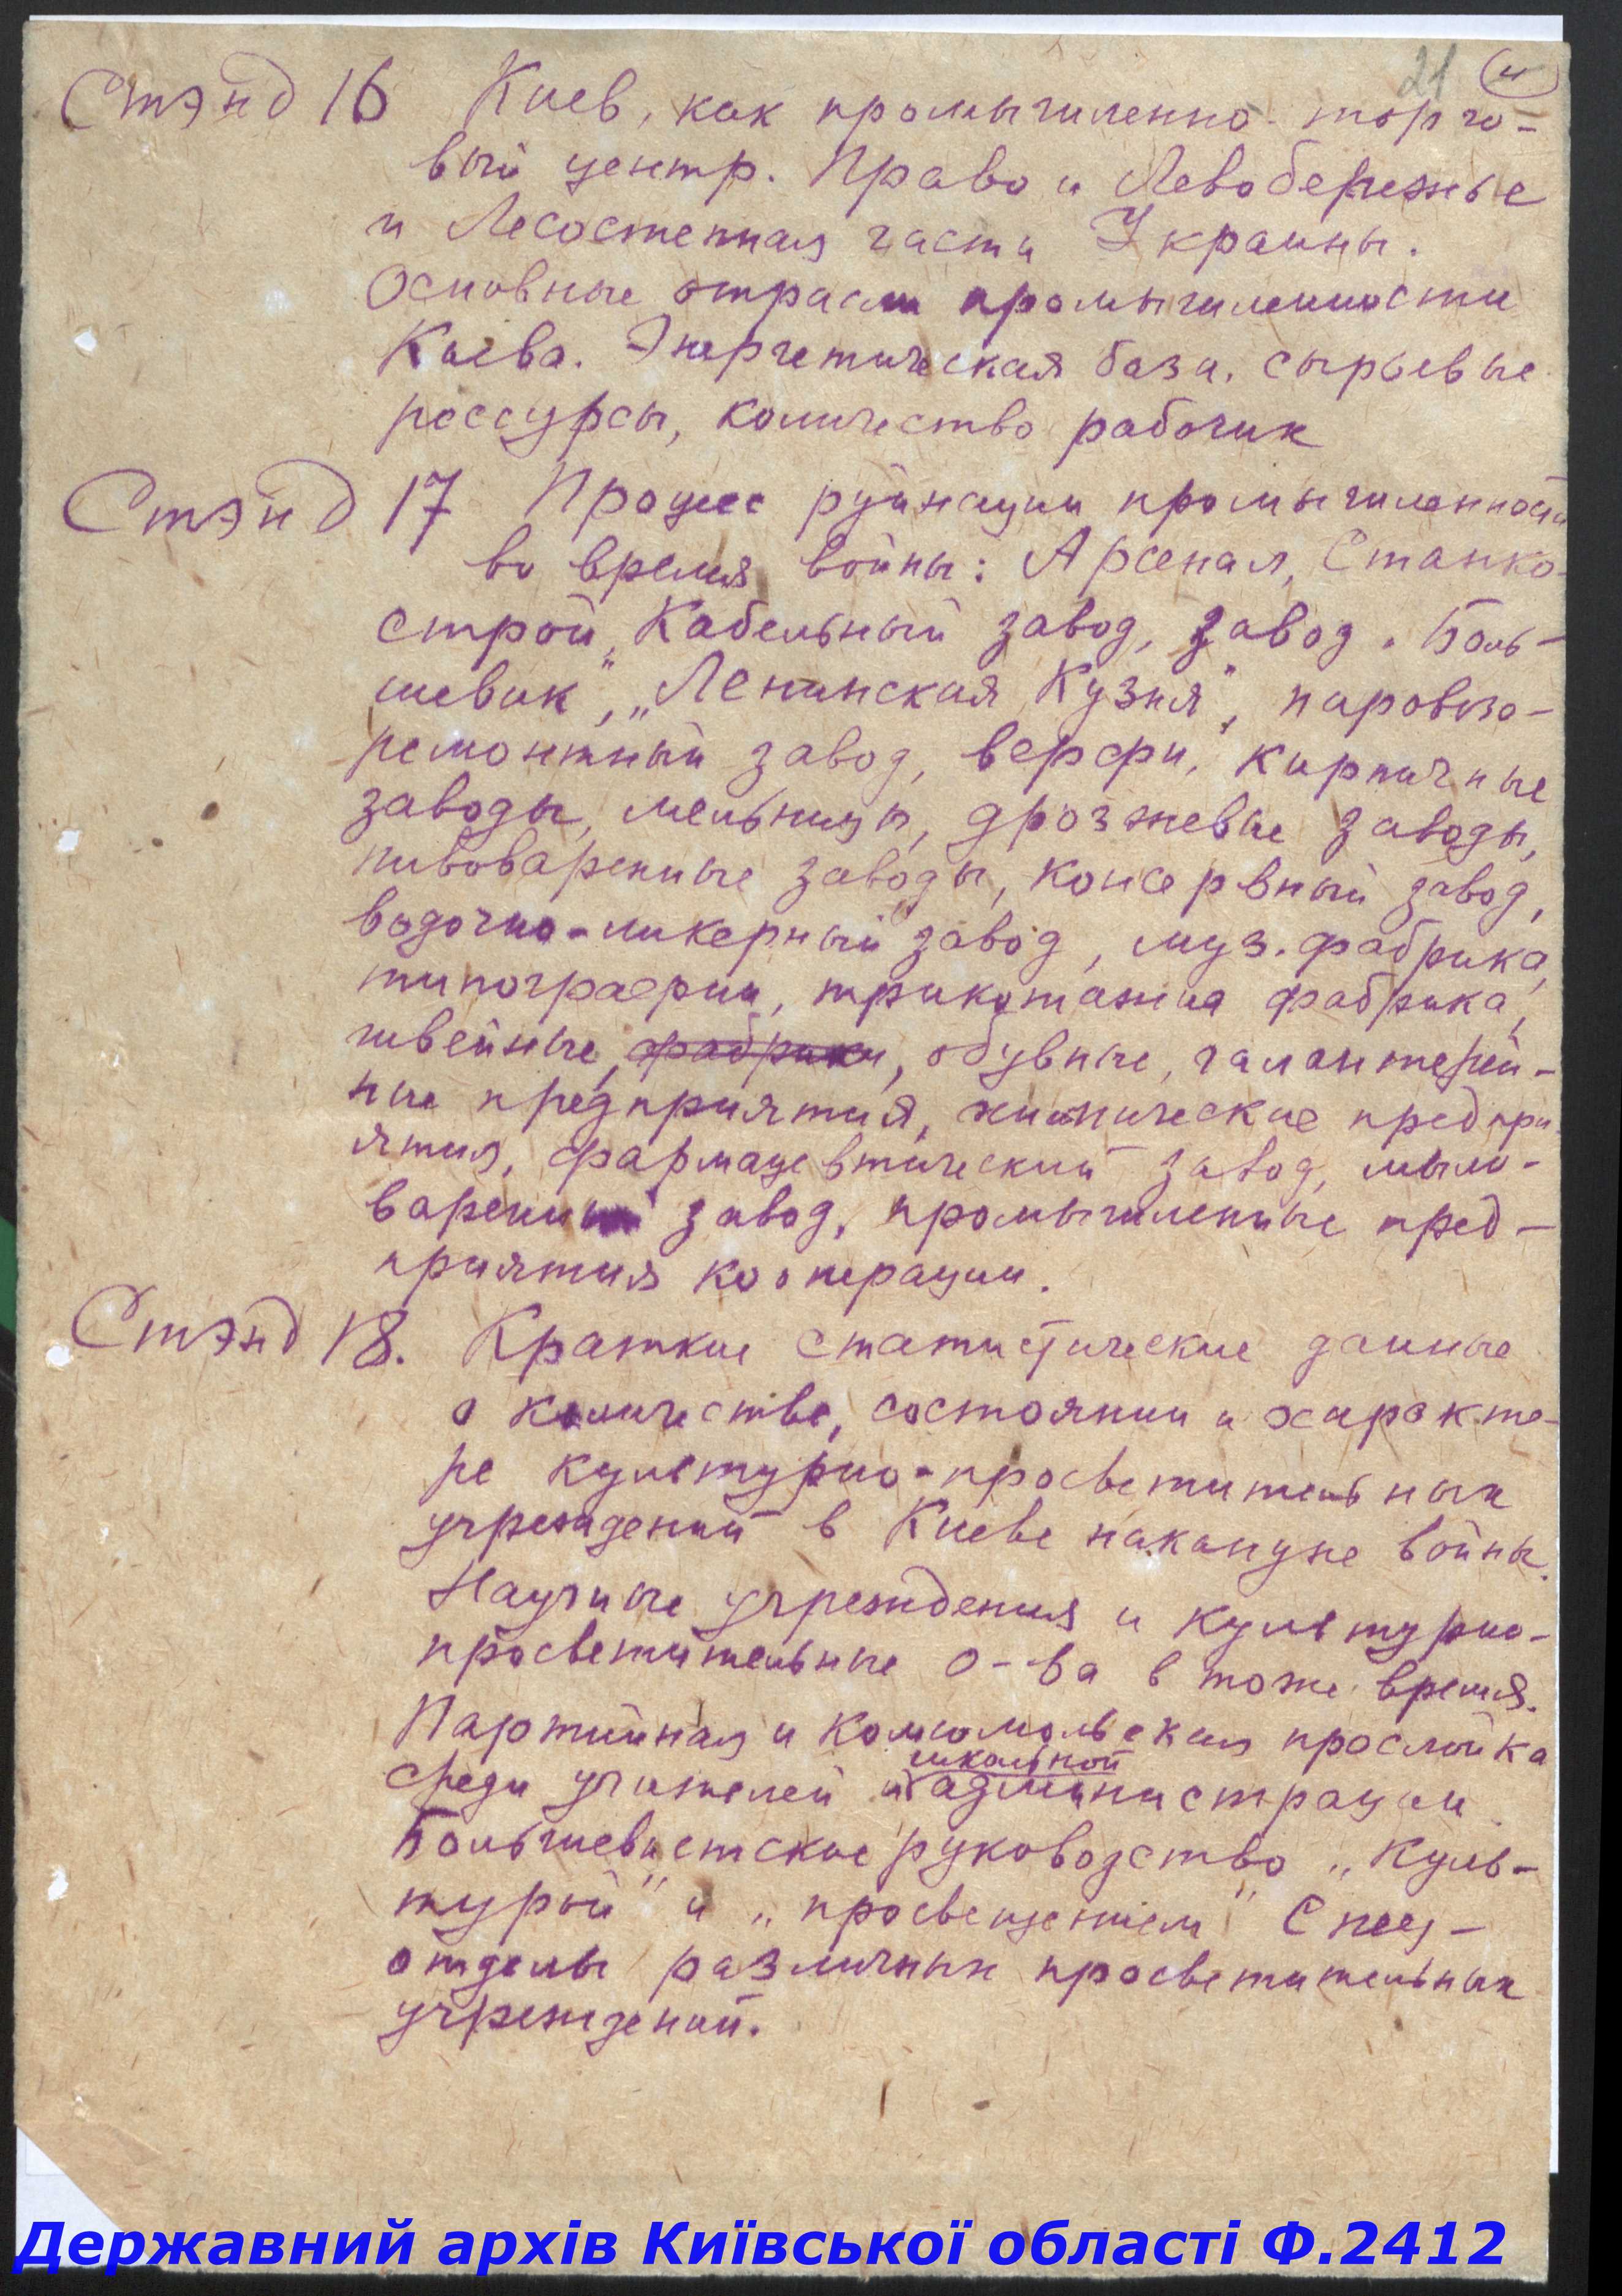 21
Стэнд 16 Киев, как промышленно-торго-
вый центр. Право и Левобережье
и Лесостепная части Украины.
Основные отрасли промышленности
Киева. Энергетическая база, сырьевые
рессурсы, количество рабочих
Стэнд 17 Процесс руйнации промышленности
во время войны: Арсенал, Станко-
строй, Кабельный завод, завод „Боль-
шевик“, „Ленинская Кузня“, паровозо-
ремонтный завод, верфи, кирпичные
заводы, мельницы, дрозжевые заводы,
пивоваренные заводы, консервный завод,
водочно-ликерный завод, муз. фабрика,
типографии, трикотажная фабрика,
швейные, фабрики, обувные, галантерей-
ные предприятия, химические предпри-
ятия, фармацевтический завод, мыло-
варенный завод, промышленные пред-
приятия кооперации.
Стэнд 18. Краткие статистические данные
о количестве, состоянии и характе-
ре культурно-просветительных
учреждений в Киеве накануне войны.
Научные учреждения и культурно-
просветительные о-ва в тоже время.
Партийная и комсомольская прослойка
среди учителей и школьной администрации
Большевистское руководство „Куль-
турой“ и „просвещением“ Спец-
отделы различных просветительных
учреждений.
Державний архів Київської області Ф.2412